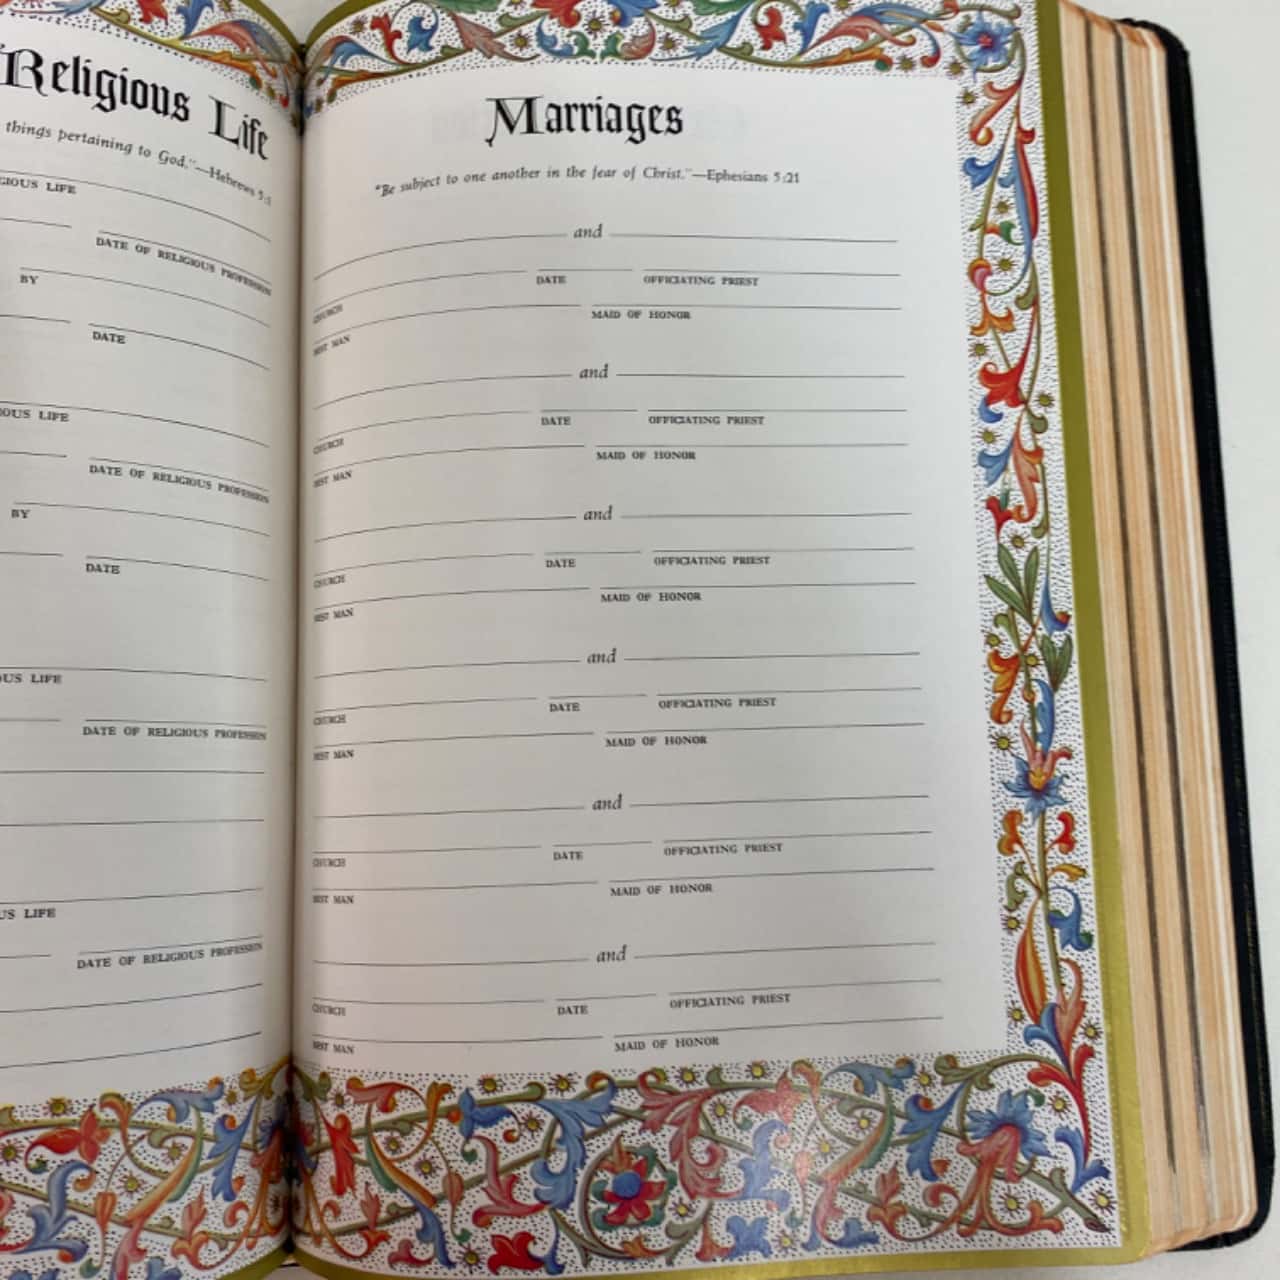 Religious Life
things pertaining to God."—Hebrews 5:1
LIFE
DATE OF RELIGIOUS PROFESSION
BY
DATE
LIFE
DATE OF RELIGIOUS PROFESSION
BY
DATE
LIFE
DATE OF RELIGIOUS PROFESSION
LIFE
DATE OF RELIGIOUS PROFESSION
Marriages
"Be subject to one another in the fear of Christ."—Ephesians 5:21
and
CHURCH DATE OFFICIATING PRIEST
BEST MAN MAID OF HONOR
and
CHURCH DATE OFFICIATING PRIEST
BEST MAN MAID OF HONOR
and
CHURCH DATE OFFICIATING PRIEST
BEST MAN MAID OF HONOR
and
CHURCH DATE OFFICIATING PRIEST
BEST MAN MAID OF HONOR
and
CHURCH DATE OFFICIATING PRIEST
BEST MAN MAID OF HONOR
and
CHURCH DATE OFFICIATING PRIEST
BEST MAN MAID OF HONOR